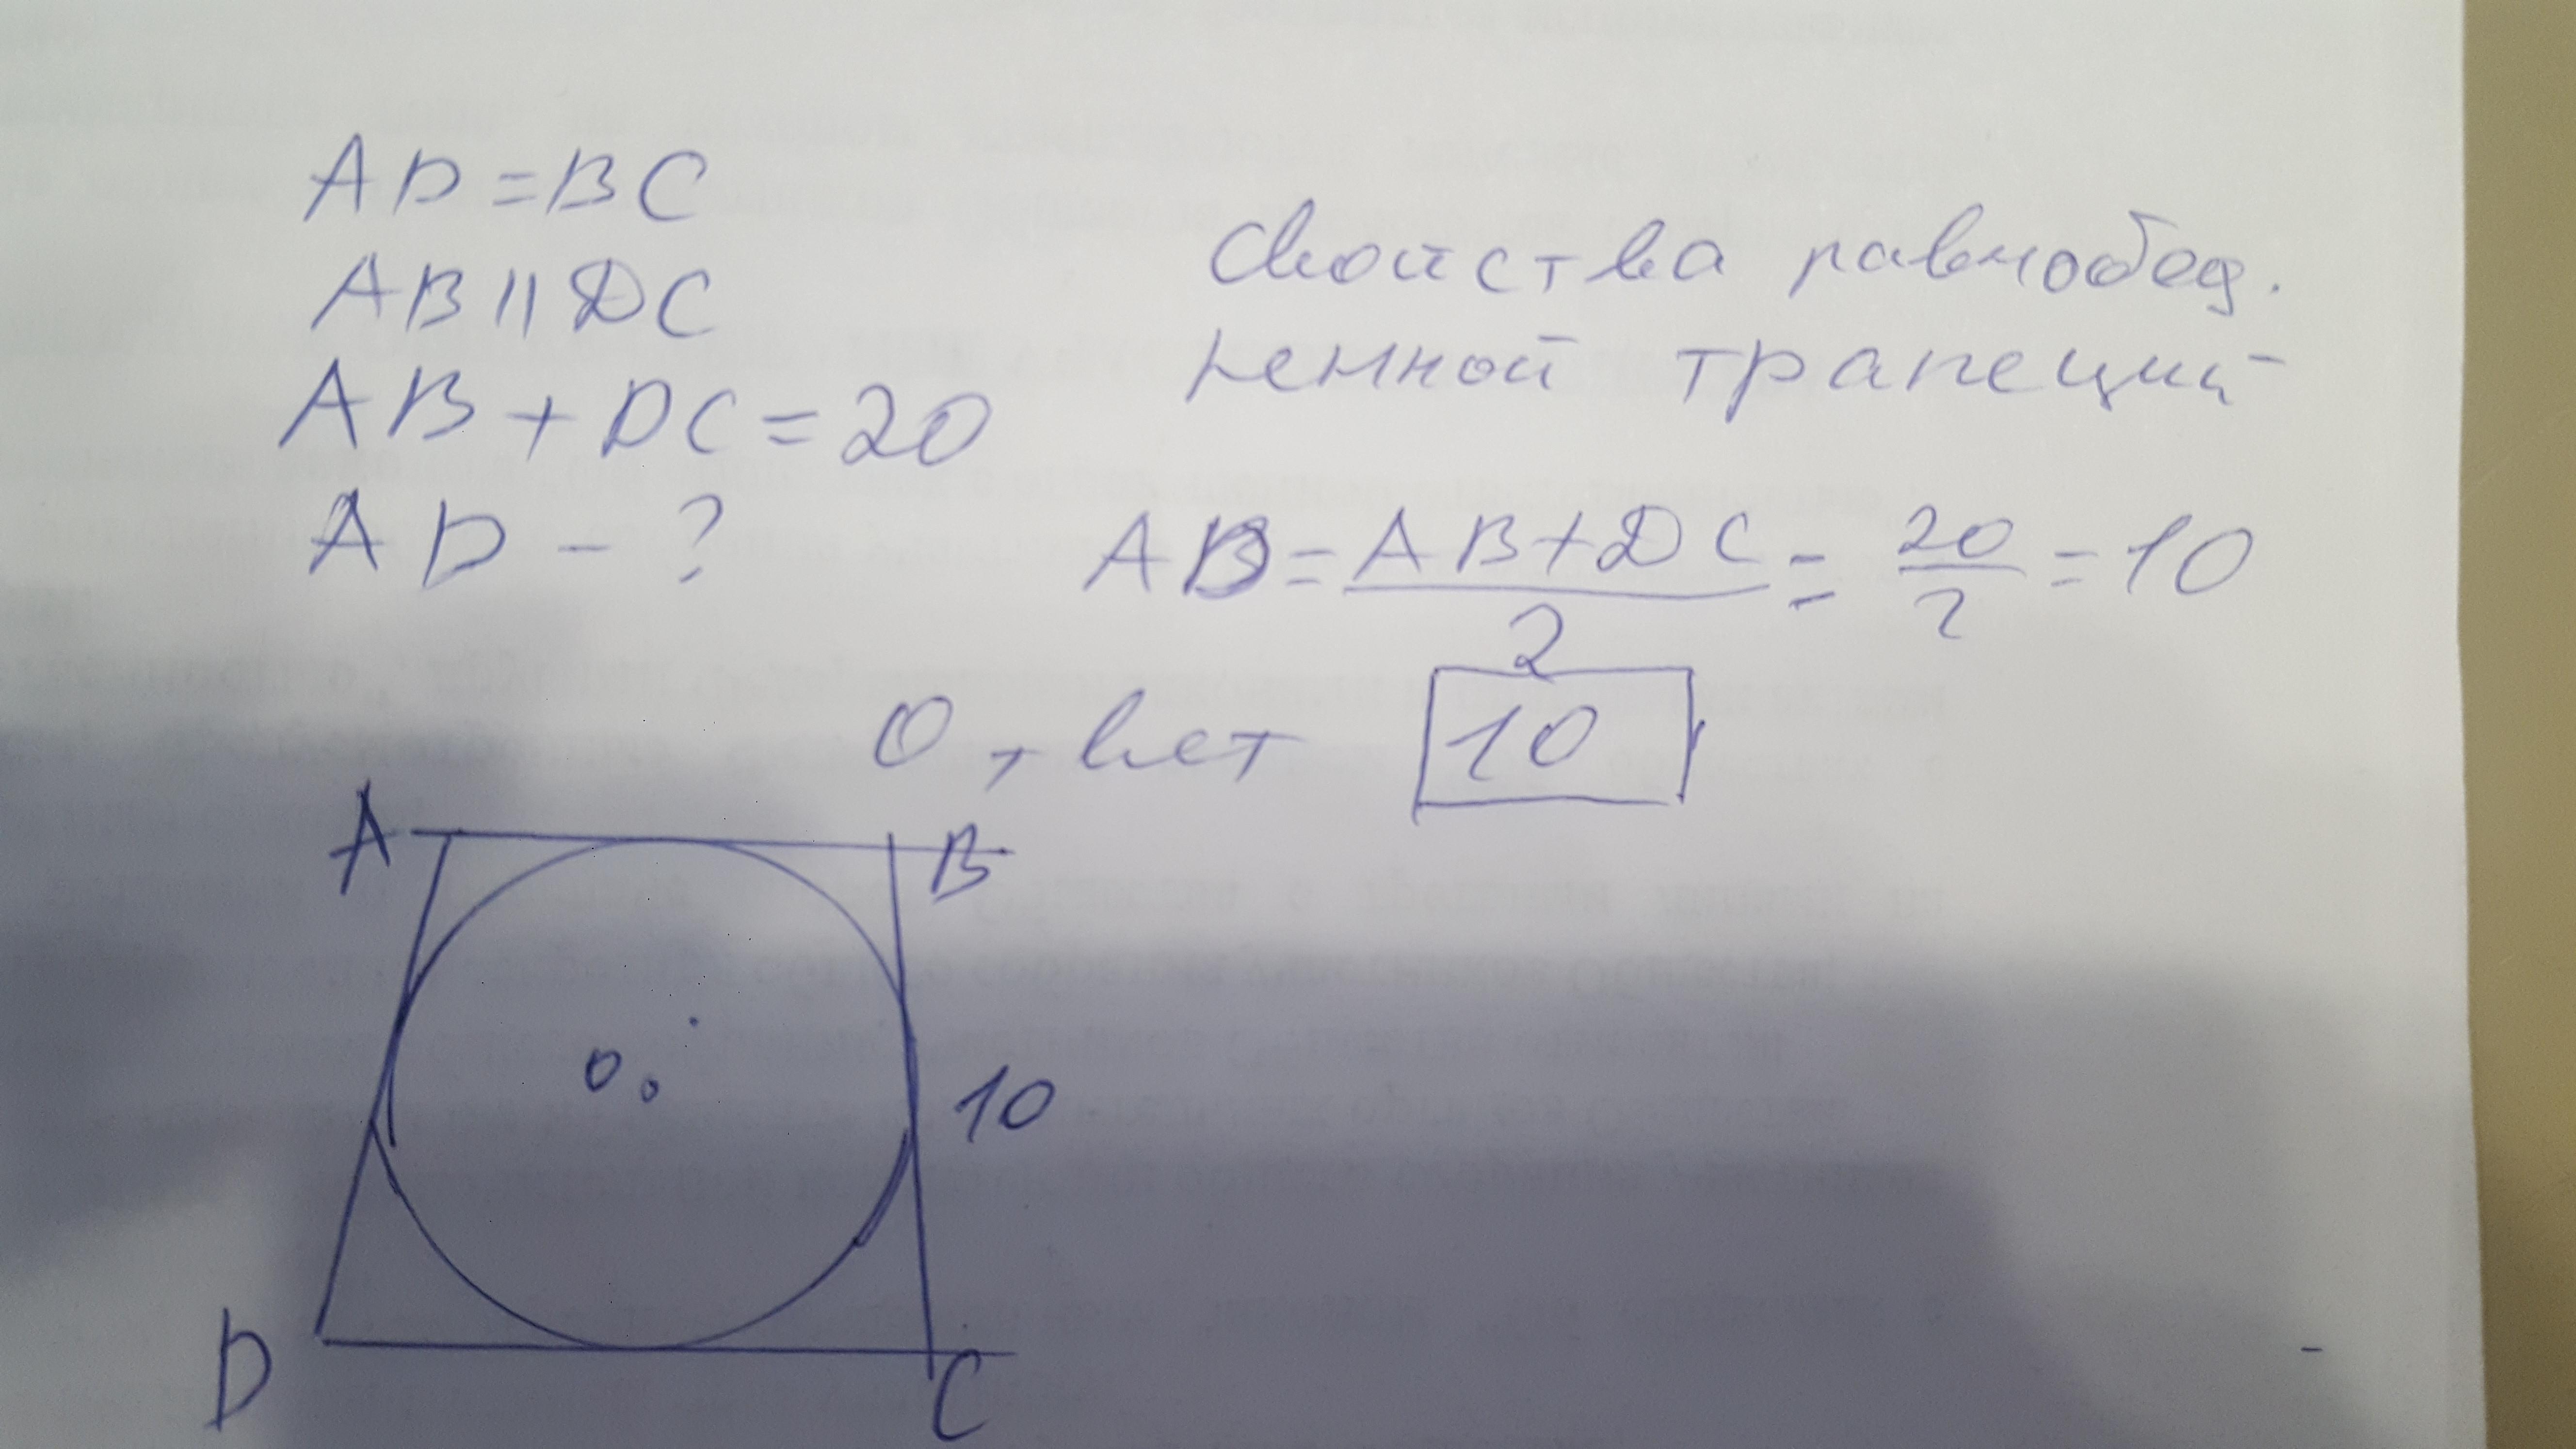 AD = BC
AB || DC
AB + DC = 20
AD - ?
Свойства равнобед.
ренной трапеций
AD = AB + DC / 2 = 20 / 2 = 10
Ответ 10
A
B
O
10
D
C